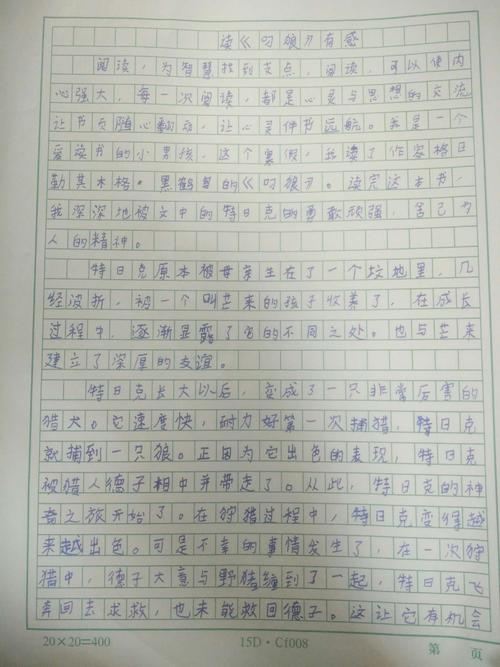 读《叼狼》有感
阅读，为智慧找到支点，阅读，可以使内
心强大，每一次阅读，都是心灵与思想的交流
让书页随心翻动，让心灵伴书远航。我是一个
爱读书的小男孩，这个寒假，我读了作家格日
勒其木格。黑鹤写的《叼狼》。读完这本书，
我深深地被文中的特日克的勇敢顽强，舍己为
人的精神。
特日克原本被母亲生在了一个坟地里，几
经波折，被一个叫芒来的孩子收养了，在成长
过程中，逐渐显露了它的不同之处。也与芒来
建立了深厚的友谊。
特日克长大以后，变成了一只非常厉害的
猎犬。它速度快，耐力好第一次捕猎，特日克
就捕到一只狼。正因为它出色的表现，特日克
被猎人德子相中并带走了。从此，特日克的神
奇之旅开始了。在狩猎过程中，特日克变得越
来越出色。可是不幸的事情发生了，在一次狩
猎中，德子大意与野猪缠到了一起，特日克飞
奔回去求救，也未能救回德子。这让它有机会
20×20=400 15D·Cf008 第 页